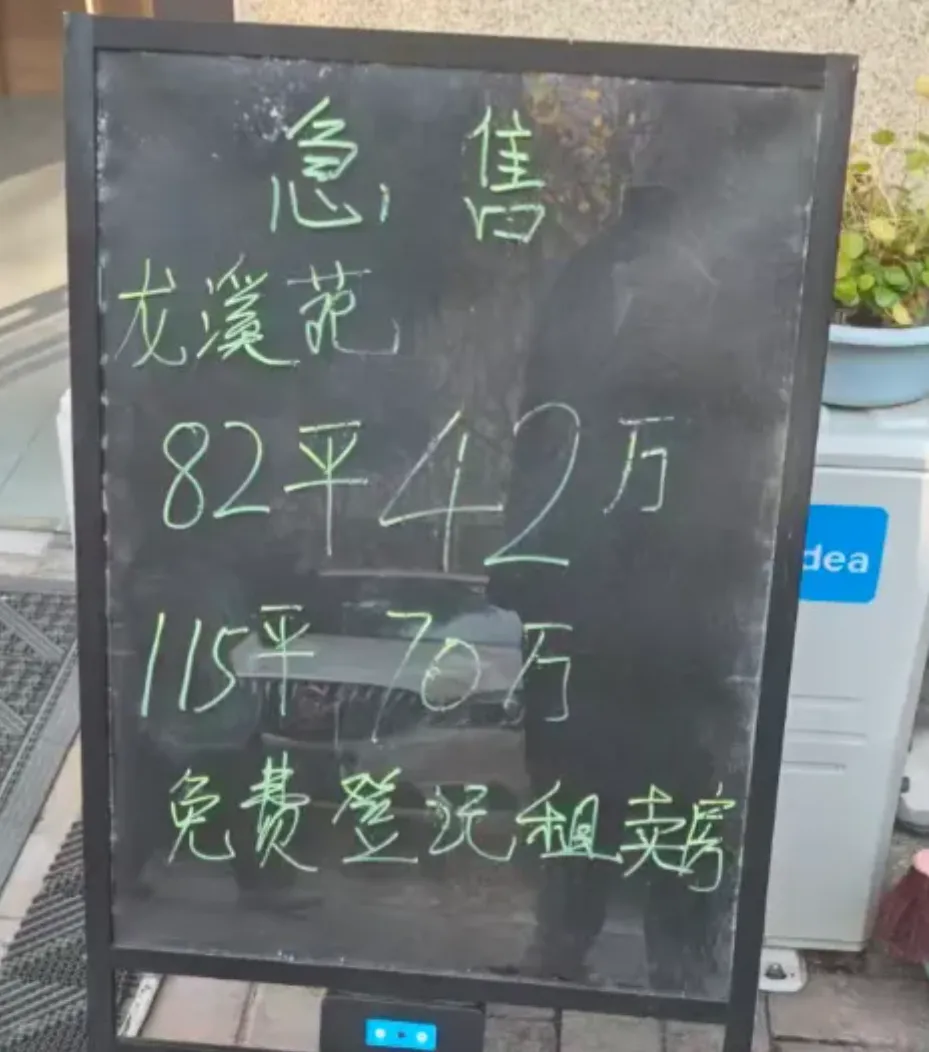 急售
龙溪苑
82平42万
115平 70万
免费登记租卖房
dea